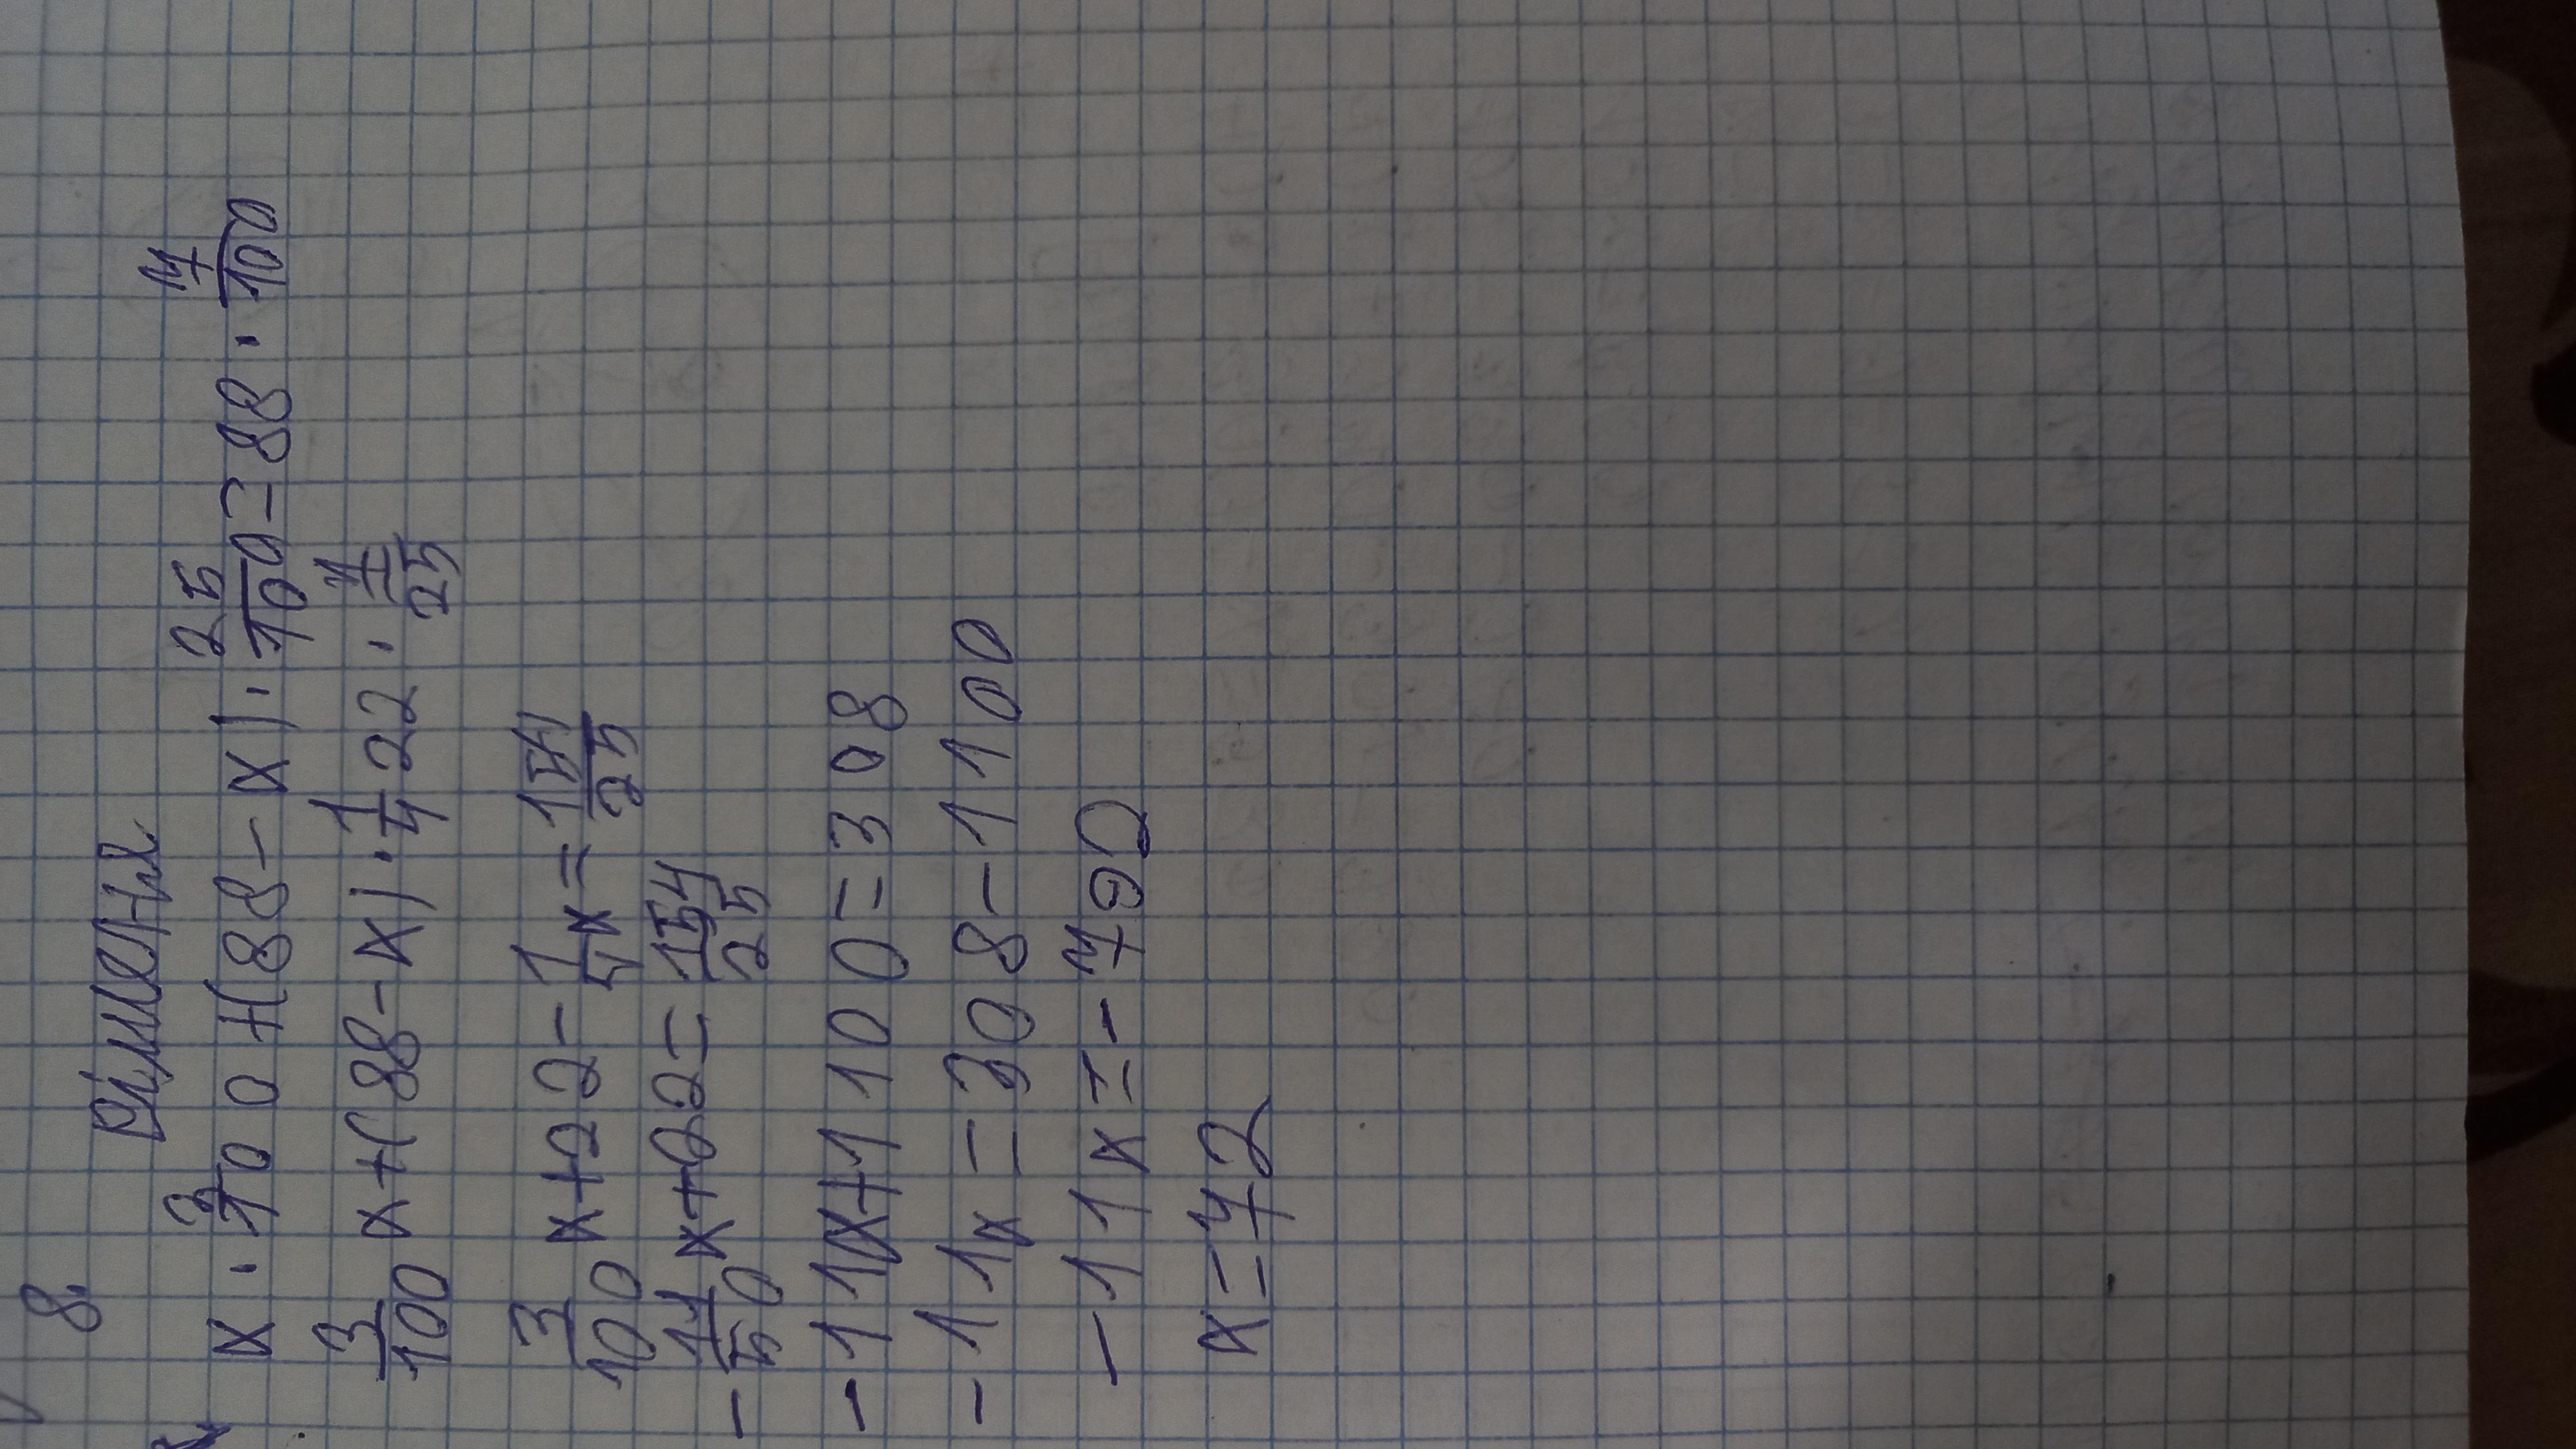 8.
x · 3/100 + (88 - x) · 25/100 = 88 · 7/100
3/100 x + (88 - x) · 1/4 22 · 7/25
3/100 x + 22 - 1/4 x = 154/25
- 11/50 x + 22 = 154/25
- 11x + 1100 = 308
- 11x = 308 - 1100
- 11x = - 792
x = 72